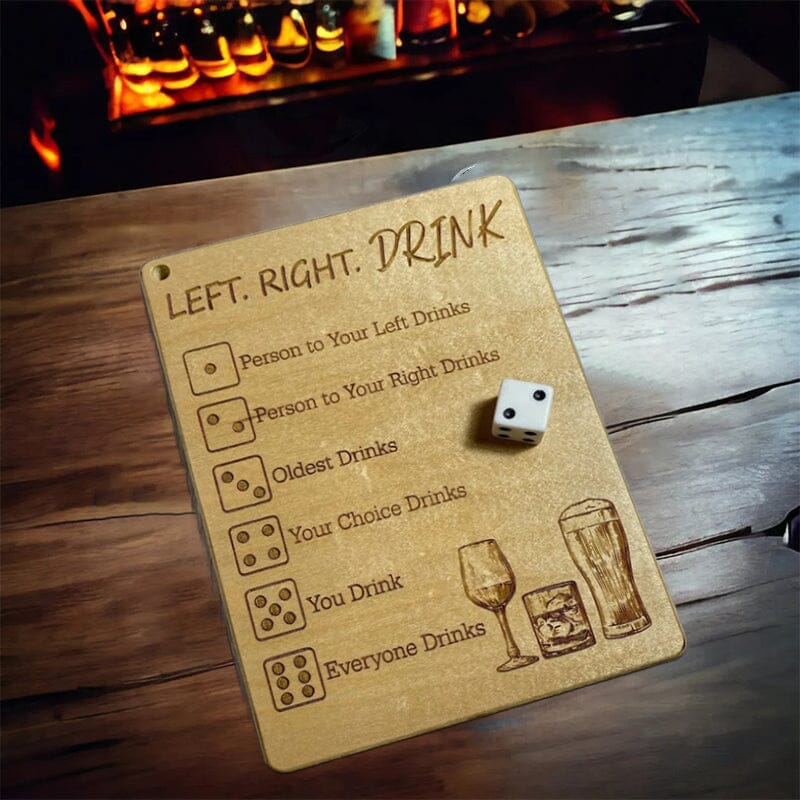 LEFT. RIGHT. DRINK
Person to Your Left Drinks
Person to Your Right Drinks
Oldest Drinks
Your Choice Drinks
You Drink
Everyone Drinks